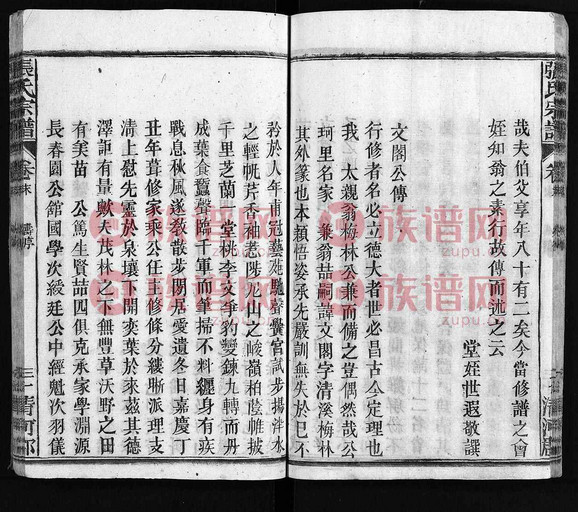 張氏宗譜
哉夫伯父享年八十有二矣今當修譜之會
姪知翁之素行故傳而述之云
堂姪世遐敬譔
文閣公傳
行修者名必立德大者世必昌古今定理也
我 太親翁梅林公兼而備之豈偶然哉公
珂里名家 兼翁喆嗣諱文閣字清溪梅林
其外篆也本穎悟姿承先嚴訓無失於已不
矜於人年甫冠藝苑馳聲黌宮試步揚泮水
之輕帆芹香袖惹陟公山之峻嶺柏蔭帷披
千里芝蘭一堂桃李文爭豹變鍊九轉而丹
成葉食蠶聲陷千軍而筆掃不料纏身有疾
戰息秋風遂教散步閒居愛遺冬日嘉慶丁
丑年葺修家乘公任主修條分縷晰派理支
清上慰先靈於泉壤下開奕葉於來茲其德
澤詎有量歟夫茂林之下無豐草沃野之田
有美苗 公篤生賢喆四俱克承家學淵源
長春園公舘國學次綬廷公中經魁次羽儀
張氏宗譜
卷末
三十
清河郡